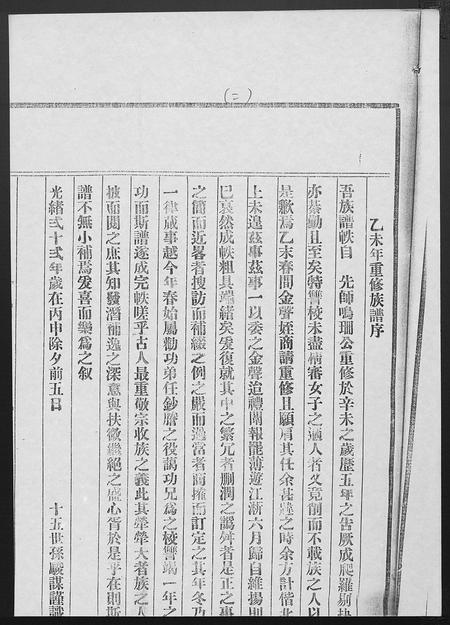 (二)
乙未年重修族譜序
吾族譜帙自 先師鳴珊公重修於辛未之歲歷五年之告厥成爬羅剔抉
亦綦勤且至矣特讐校未盡精審女子之適人者久竟削而不載族之人以
是歉焉乙未春間金聲姪商請重修且願肩其任余甚韙之時余方計偕北
上未遑茲事茲事一以委之金聲迨禮闈報罷薄遊江浙六月歸自維揚則
已裒然成帙粗具端緒矣爰復就其中之繁冗者刪潤之譌舛者是正之事
之簡而近畧者搜訪而補綴之例之嚴而過當者商搉而訂定之其年冬乃
一律蕆事越今年春始屬勸功弟任鈔謄之役藹功兄為之校讐竭一年之
功而斯譜遂成完帙嗟乎古人最重敬宗收族之義此其犖犖大者族之人
披而閱之庶其知發潛補逸之深意與扶微繼絕之盛心胥於是乎在則斯
譜不無小補焉爰喜而樂為之叙
光緒弍十弍年歲在丙申除夕前五日 十五世孫 謀謹識